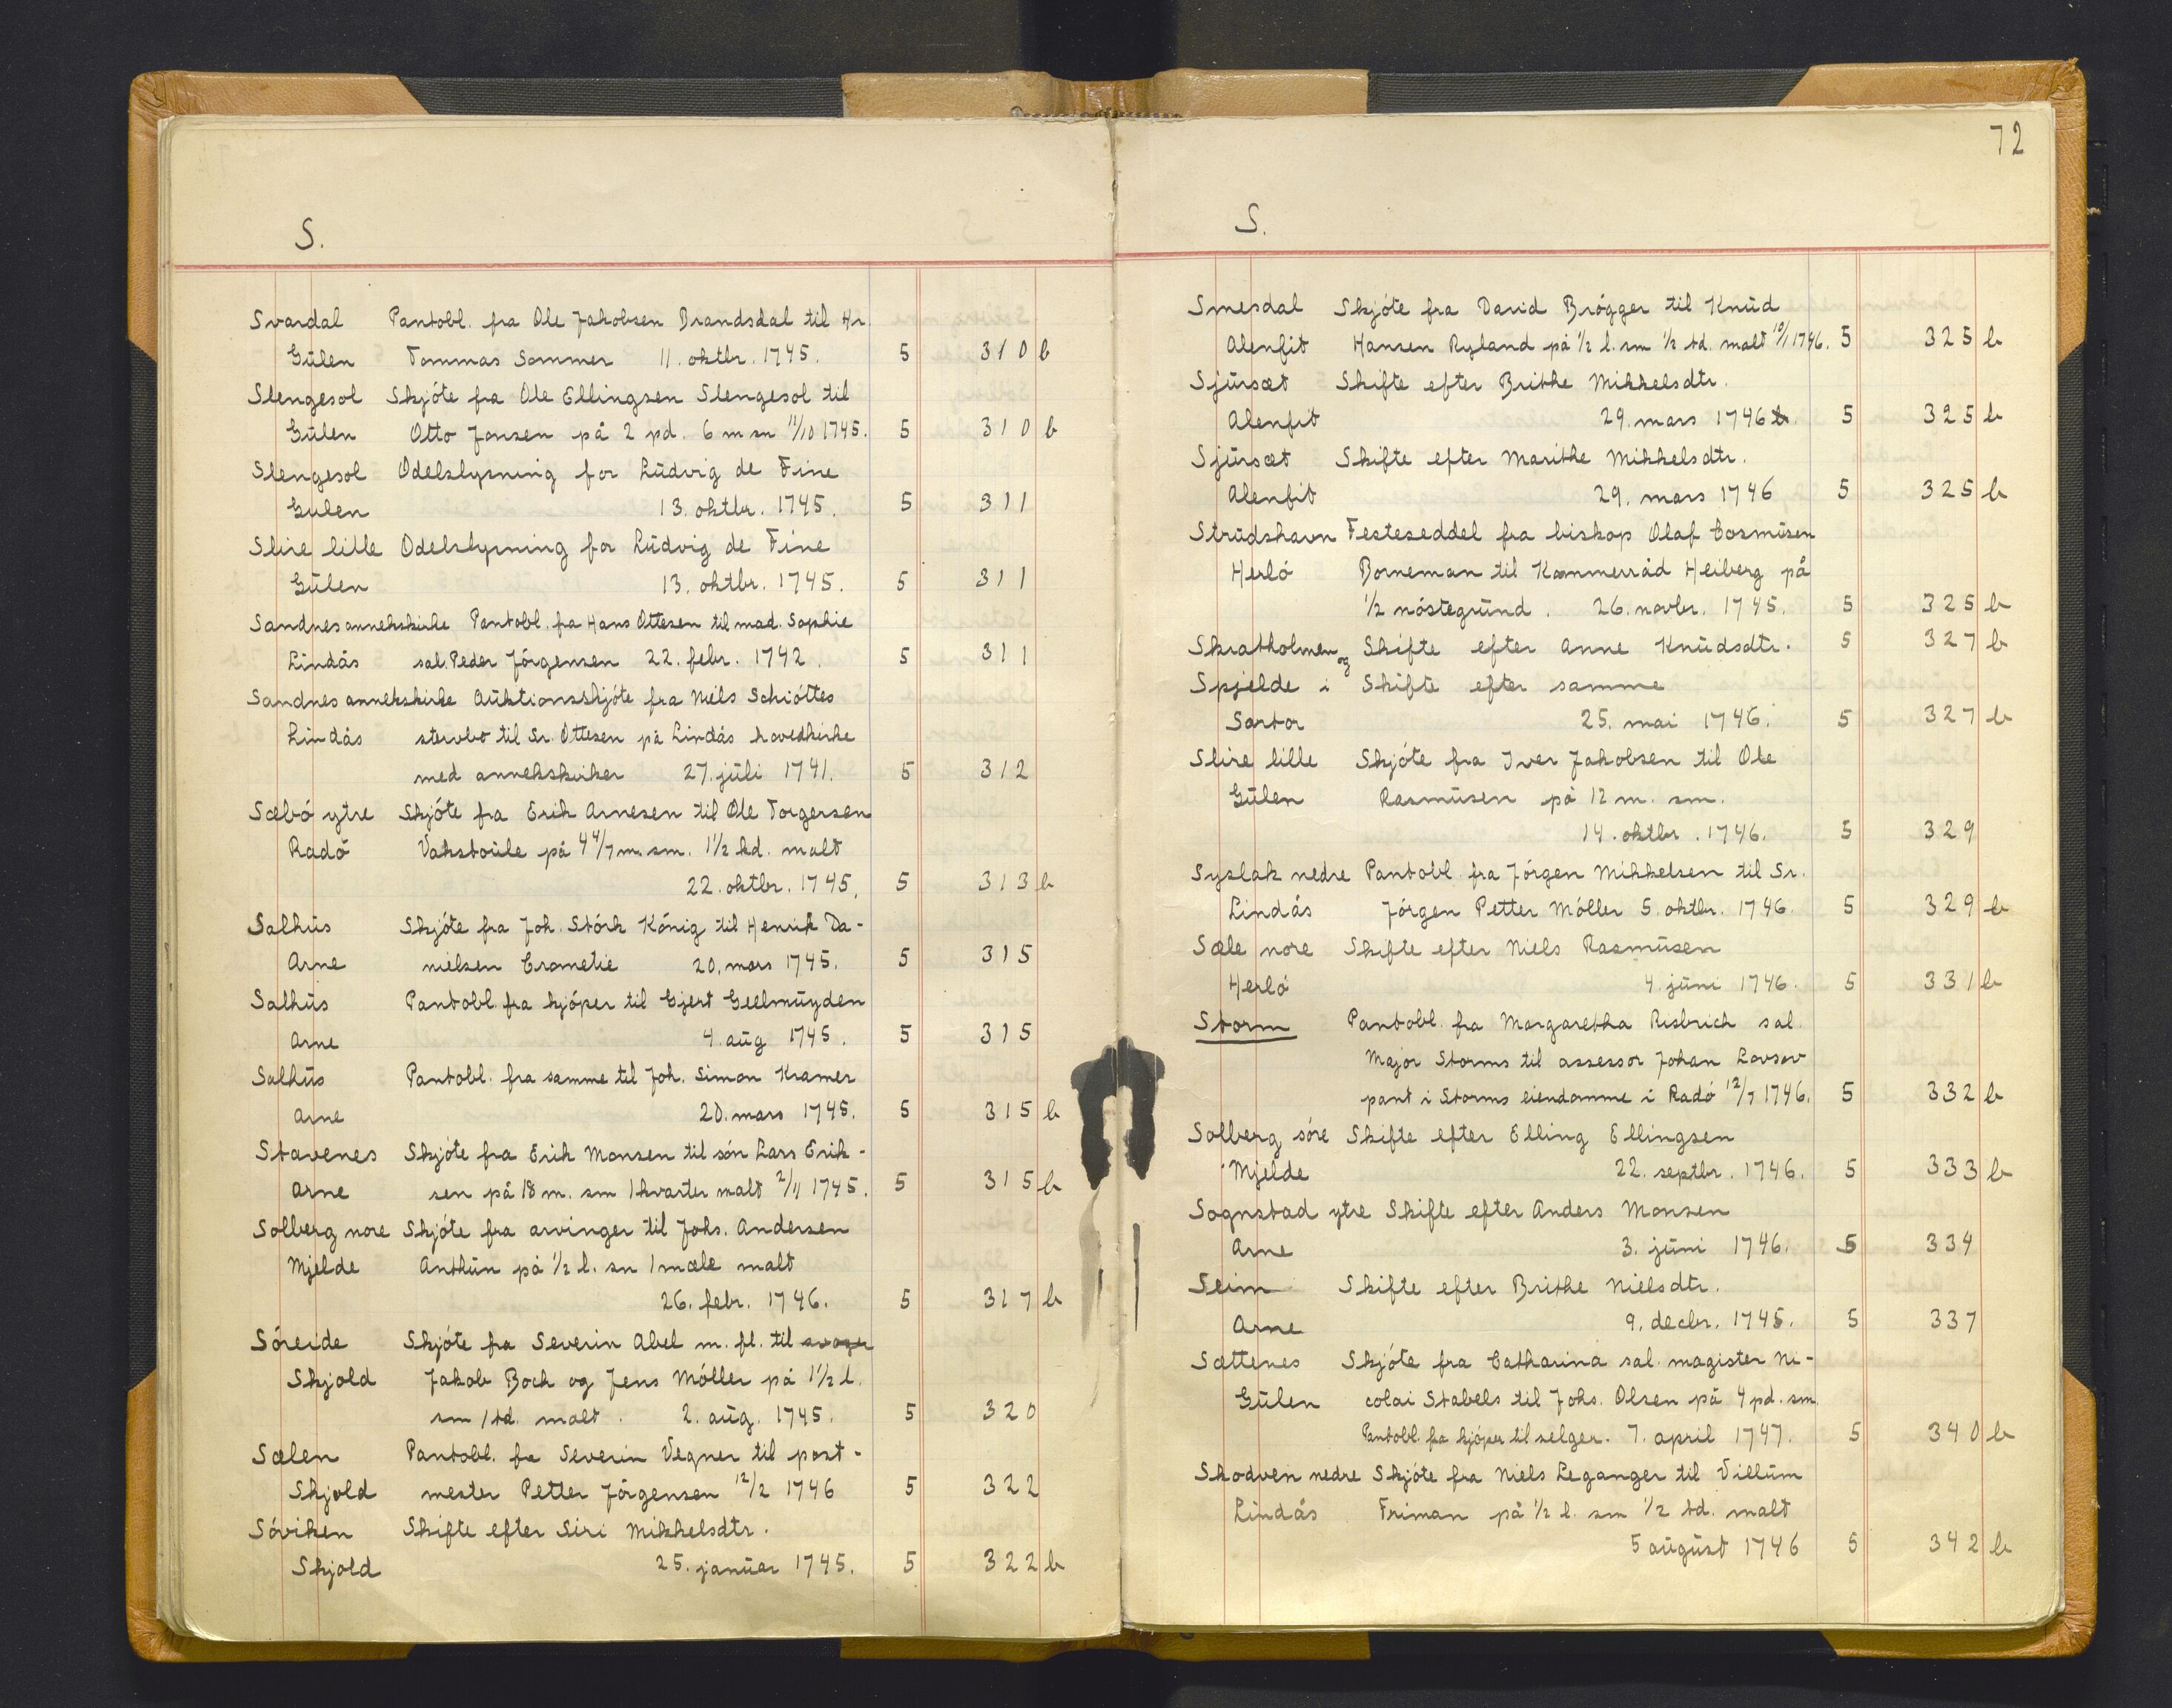 S.
Svardal Pantobl. fra Ole Jakobsen Brandsdal til Hr.
Gülen Tommas Sommer 11. oktbr. 1745. 5 310 b
Slengesol Skjóte fra Ole Ellingsen Slengesol til
Gülen Otto Jansen på 2 pd. 6 m sm 11/10 1745. 5 310 b
Slengesol Odelslysning for Lüdvig de Fine
Gulen 13. oktbr. 1745. 5 311
Slire lille Odelslysning for Lüdvig de Fine
Gülen 13. oktbr. 1745. 5 311
Sandnes annekskirke Pantobl. fra Hans Ottesen til mad. Sophie
Lindås sal. Peder Jórgensen 22. febr. 1742. 5 311
Sandnes annekskirke Aüktionsskjóte fra Niels Schióttes
Lindås stervbo til Sr. Ottesen på Lindås hovedkirke
med annekskirker 27. jüli 1741. 5 312
Sæbó ytre Skjóte fra Erik Arnesen til Ole Torgersen
Radó Vakstoüle på 4 4/7 m. sm. 1 1/2 hd. malt
22. oktbr. 1745. 5 313 b
Salhüs Skjóte fra Joh. Stórk Kónig til Henrik Da-
Arne nielsen Crametie 20. mars 1745. 5 315
Salhüs Pantobl. fra kjóper til Gjert Geelmüyden
Arne 4. aüg 1745. 5 315
Salhüs Pantobl. fra samme til Joh. Simon Kramer
Arne 20. mars 1745. 5 315 b
Stavenes Skjóte fra Erik Monsen til són Lars Erik-
Arne sen på 18 m. sm 1 kvarter malt 2/11 1745. 5 315 b
Solberg nore Skjóte fra arvinger til Johs. Andersen
Mjelde Anthün på 1/2 l. sm 1 mæle malt
26. febr. 1746. 5 317 b
Sóreide Skjóte fra Severin Abel m. fl. til svoger
Skjold Jakob Boch og Jens Móller på 1 1/2 l.
sm 1 td. malt. 2. aüg. 1745. 5 320
Sælen Pantobl. fra Severin Vegner til post-
Skjold mester Petter Jórgensen 12/2 1746 5 322
Sóviken Skifte efter Siri Mikkelsdtr.
Skjold 25. janüar 1745. 5 322 b
72
S.
Smesdal Skjóte fra David Brógger til Knüd
Alenfit Hansen Ryland på 1/2 l. sm 1/2 td. malt 10/1 1746. 5 325 b
Sjürsæt Skifte efter Brithe Mikkelsdtr.
Alenfit 29. mars 1746. 5 325 b
Sjürsæt Skifte efter Marithe Mikkelsdtr.
Alenfit 29. mars 1746 5 325 b
Strüdshavn Festeseddel fra biskop Olaf Cosmüsen
Herló Borneman til Kammerråd Heiberg på
1/2 nóstegründ. 26. novbr. 1745. 5 325 b
Skratholmen og Skifte efter Anne Knüdsdtr. 5 327 b
Spjelde i Skifte efter samme
Sartor 25. mai 1746. 5 327 b
Slire lille Skjóte fra Iver Jakobsen til Ole
Gülen Rasmüsen på 12 m. sm.
14. oktbr. 1746. 5 329
Syslak nedre Pantobl. fra Jórgen Mikkelsen til Sr.
Lindås Jórgen Petter Móller 5. oktbr. 1746. 5 329 b
Sæle nore Skifte efter Niels Rasmüsen
Herló 4. jüni 1746. 5 331 b
Storm Pantobl. fra Margaretha Risbrich sal.
Major Storms til assessor Johan Lovsov
pant i Storms eiendomme i Radó 12/7 1746. 5 332 b
Solberg sóre Skifte efter Elling Ellingsen
Mjelde 22. septbr. 1746. 5 333 b
Sognstad ytre Skifte efter Anders Monsen
Arne 3. jüni 1746. 5 334
Seim Skifte efter Brithe Nielsdtr.
Arne 9. decbr. 1745. 5 337
Sættenes Skjóte fra Catharina sal. magister Ni-
Gülen colai Stabels til Johs. Olsen på 4 pd. sm.
Pantobl. fra kjóper til selger. 7. april 1747. 5 340 b
Skodven nedre Skjóte fra Niels Leganger til Villüm
Lindås Friman på 1/2 l. sm 1/2 td. malt
5 aügüst 1746 5 342 b